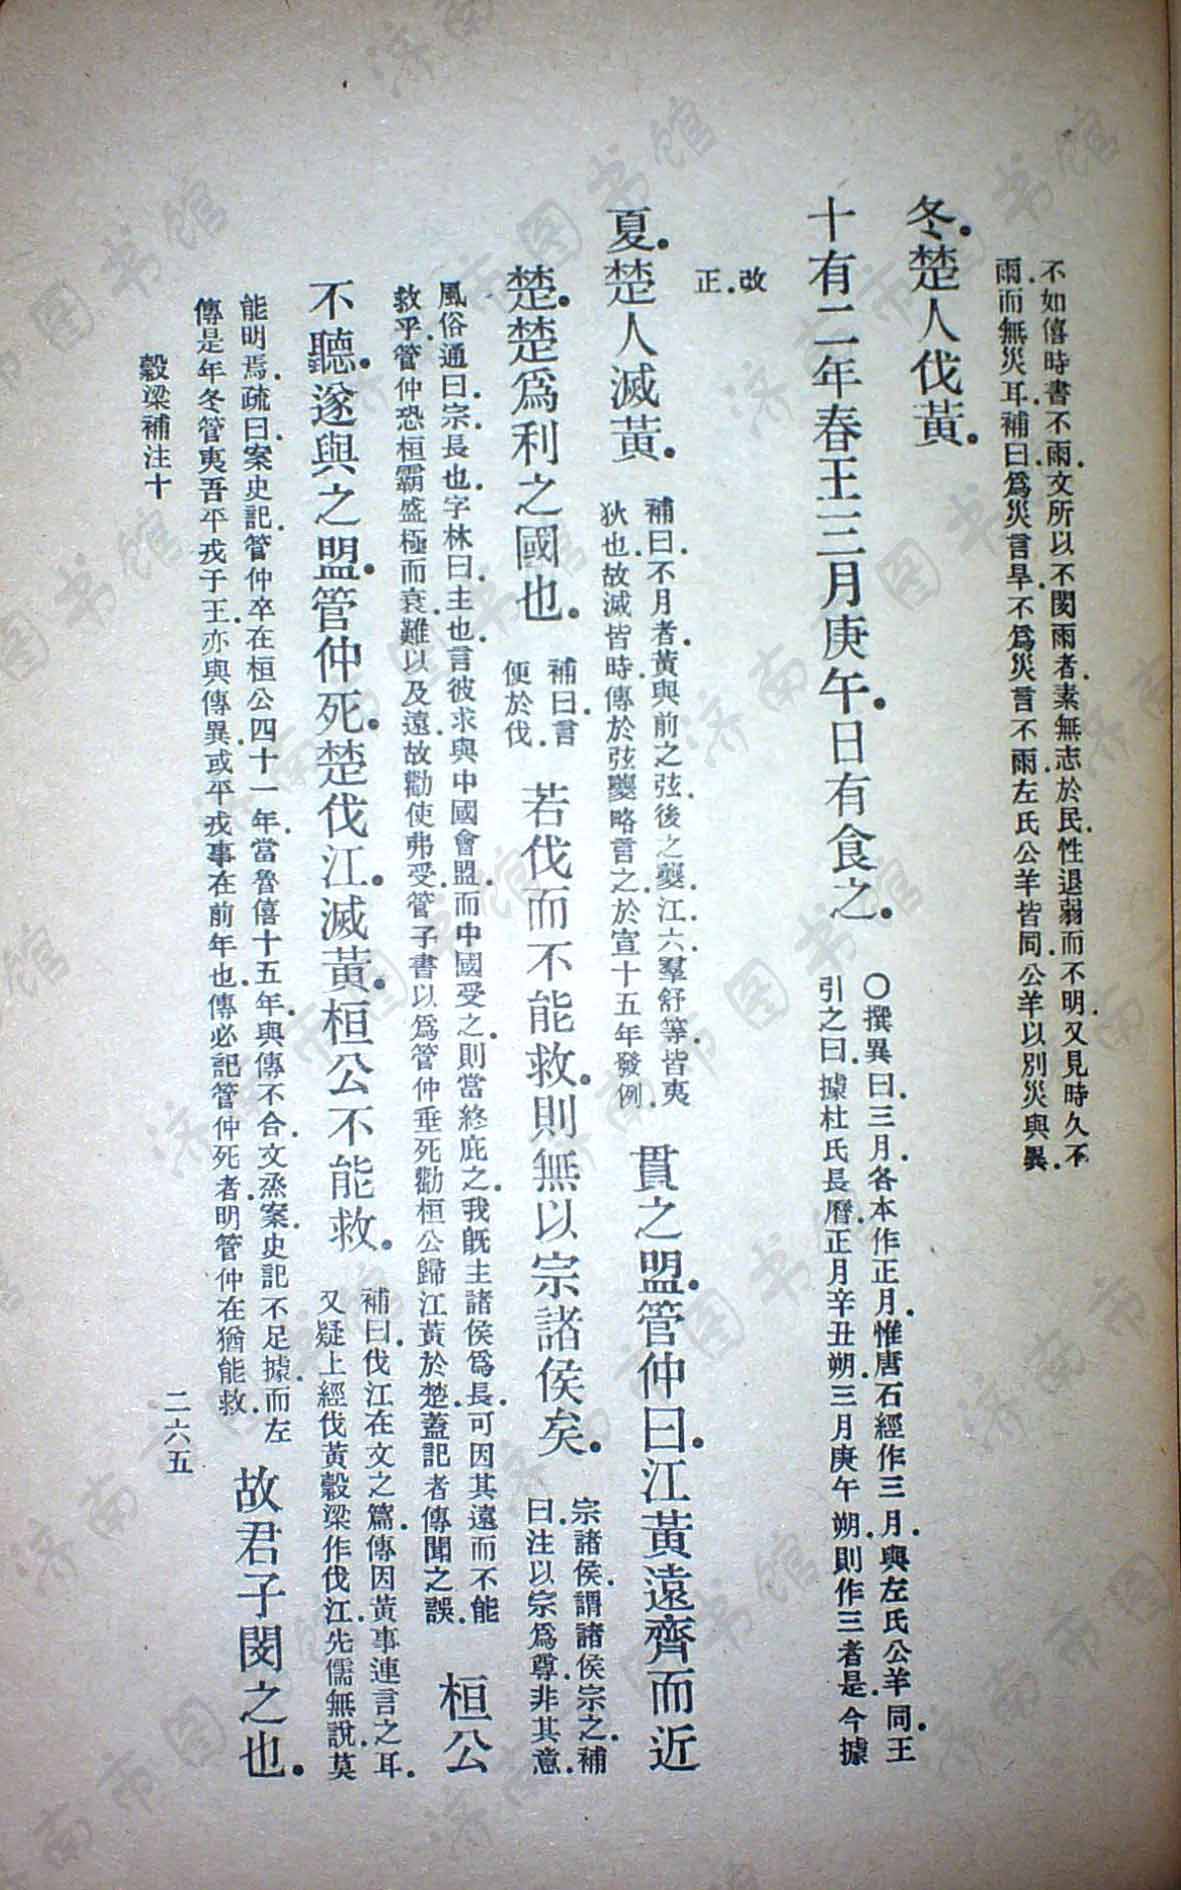 不如僖時書不雨文所以不閔雨者素無志於民性退弱而不明又見時久不
雨而無災耳補曰爲災言旱不爲災言不雨左氏公羊皆同公羊以別災與異
冬楚人伐黃
十有二年春王三月庚午日有食之
〇撰異曰三月各本作正月惟唐石經作三月與左氏公羊同王
引之曰據杜氏長曆正月辛丑朔三月庚午朔則作三者是今據
改
正
夏楚人滅黃
補曰不月者黃與前之弦後之夔江六羣舒等皆夷
狄也故滅皆時傳於弦夔略言之於宣十五年發例
貫之盟管仲曰江黃遠齊而近
楚楚爲利之國也
補曰言
便於伐
若伐而不能救則無以宗諸侯矣
宗諸侯謂諸侯宗之補
曰注以宗爲尊非其意
風俗通曰宗長也字林曰主也言彼求與中國會盟而中國受之則當終庇之我旣主諸侯爲長可因其遠而不能
救乎管仲恐桓霸盛極而衰難以及遠故勸使弗受管子書以爲管仲垂死勸桓公歸江黃於楚蓋記者傳聞之誤
桓公
不聽遂與之盟管仲死楚伐江滅黃桓公不能救
補曰伐江在文之篇傳因黃事連言之耳
又疑上經伐黃穀梁作伐江先儒無說莫
能明焉疏曰案史記管仲卒在桓公四十一年當魯僖十五年與傳不合文烝案史記不足據而左
傳是年冬管夷吾平戎于王亦與傳異或平戎事在前年也傳必記管仲死者明管仲在猶能救
故君子閔之也
穀梁補注十
二六五
济南市图书馆